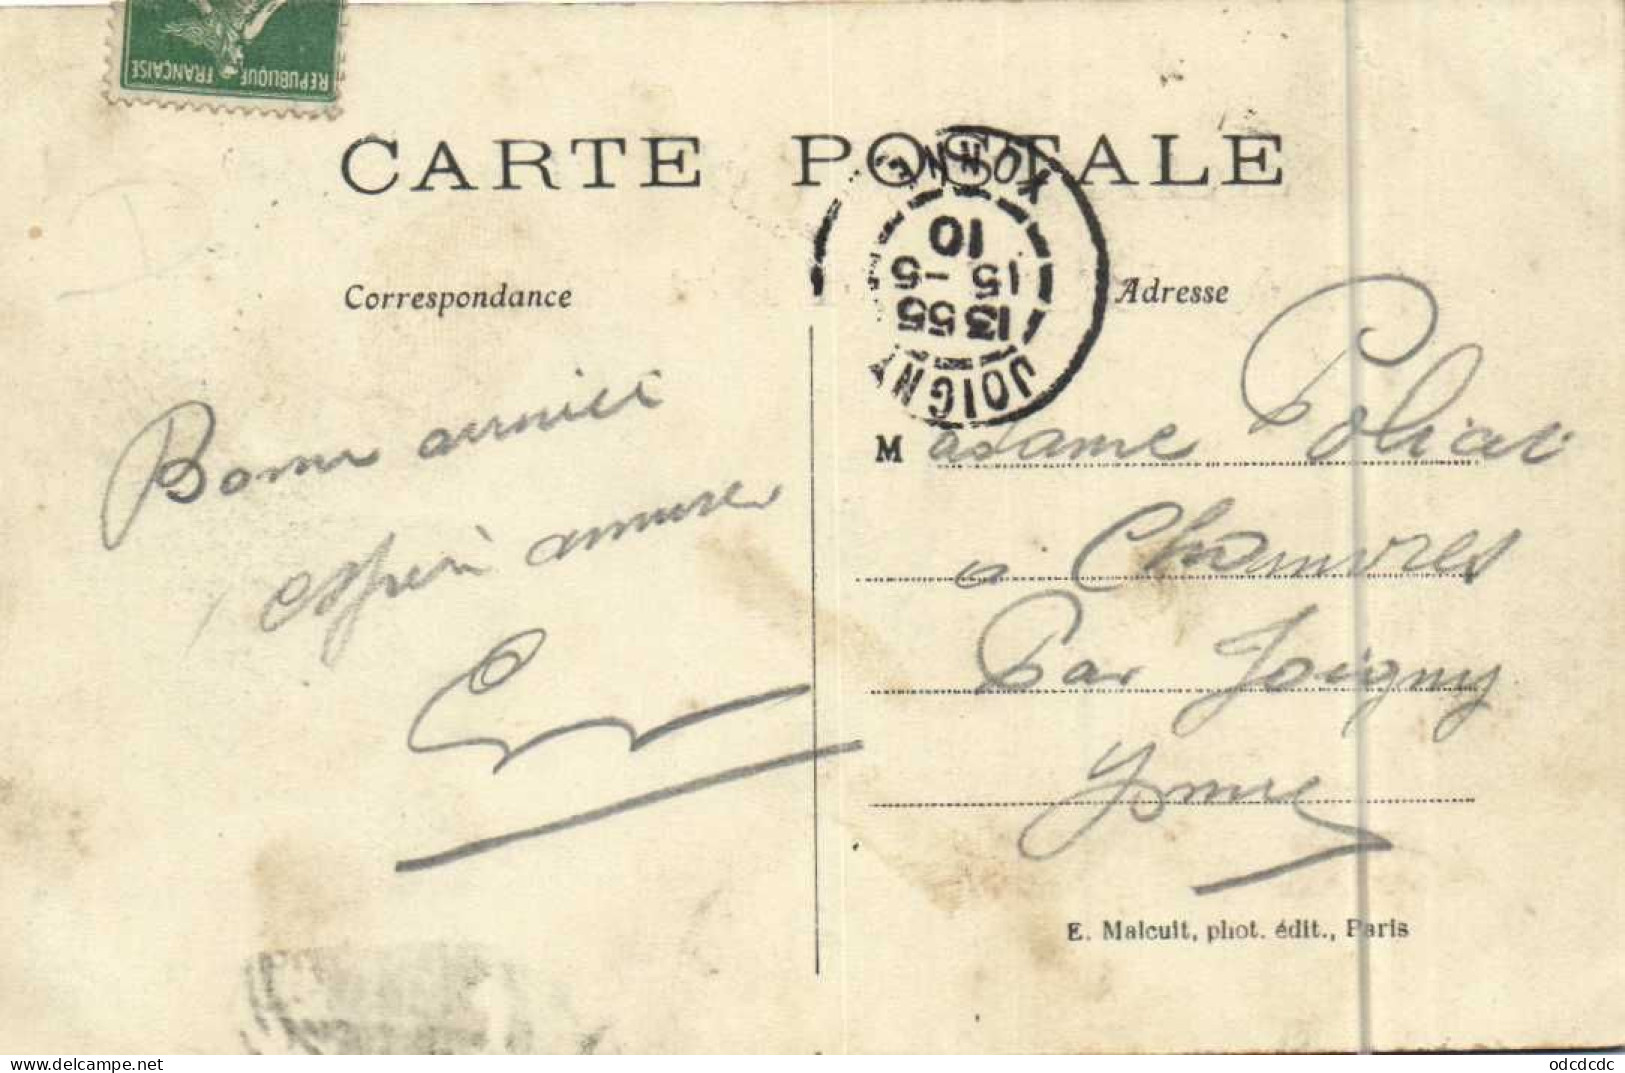 REPUBLIQUE FRANÇAISE
CARTE POSTALE
Correspondance
Adresse
JOIGNY
YONNE
13 55
15 -5
10
Bonne arrivée
espère amuser
Madame Poliat
a Chamvres
Par Joigny
Yonne
E. Malcuit, phot. édit., Paris
delcampe.net
odcdcdc